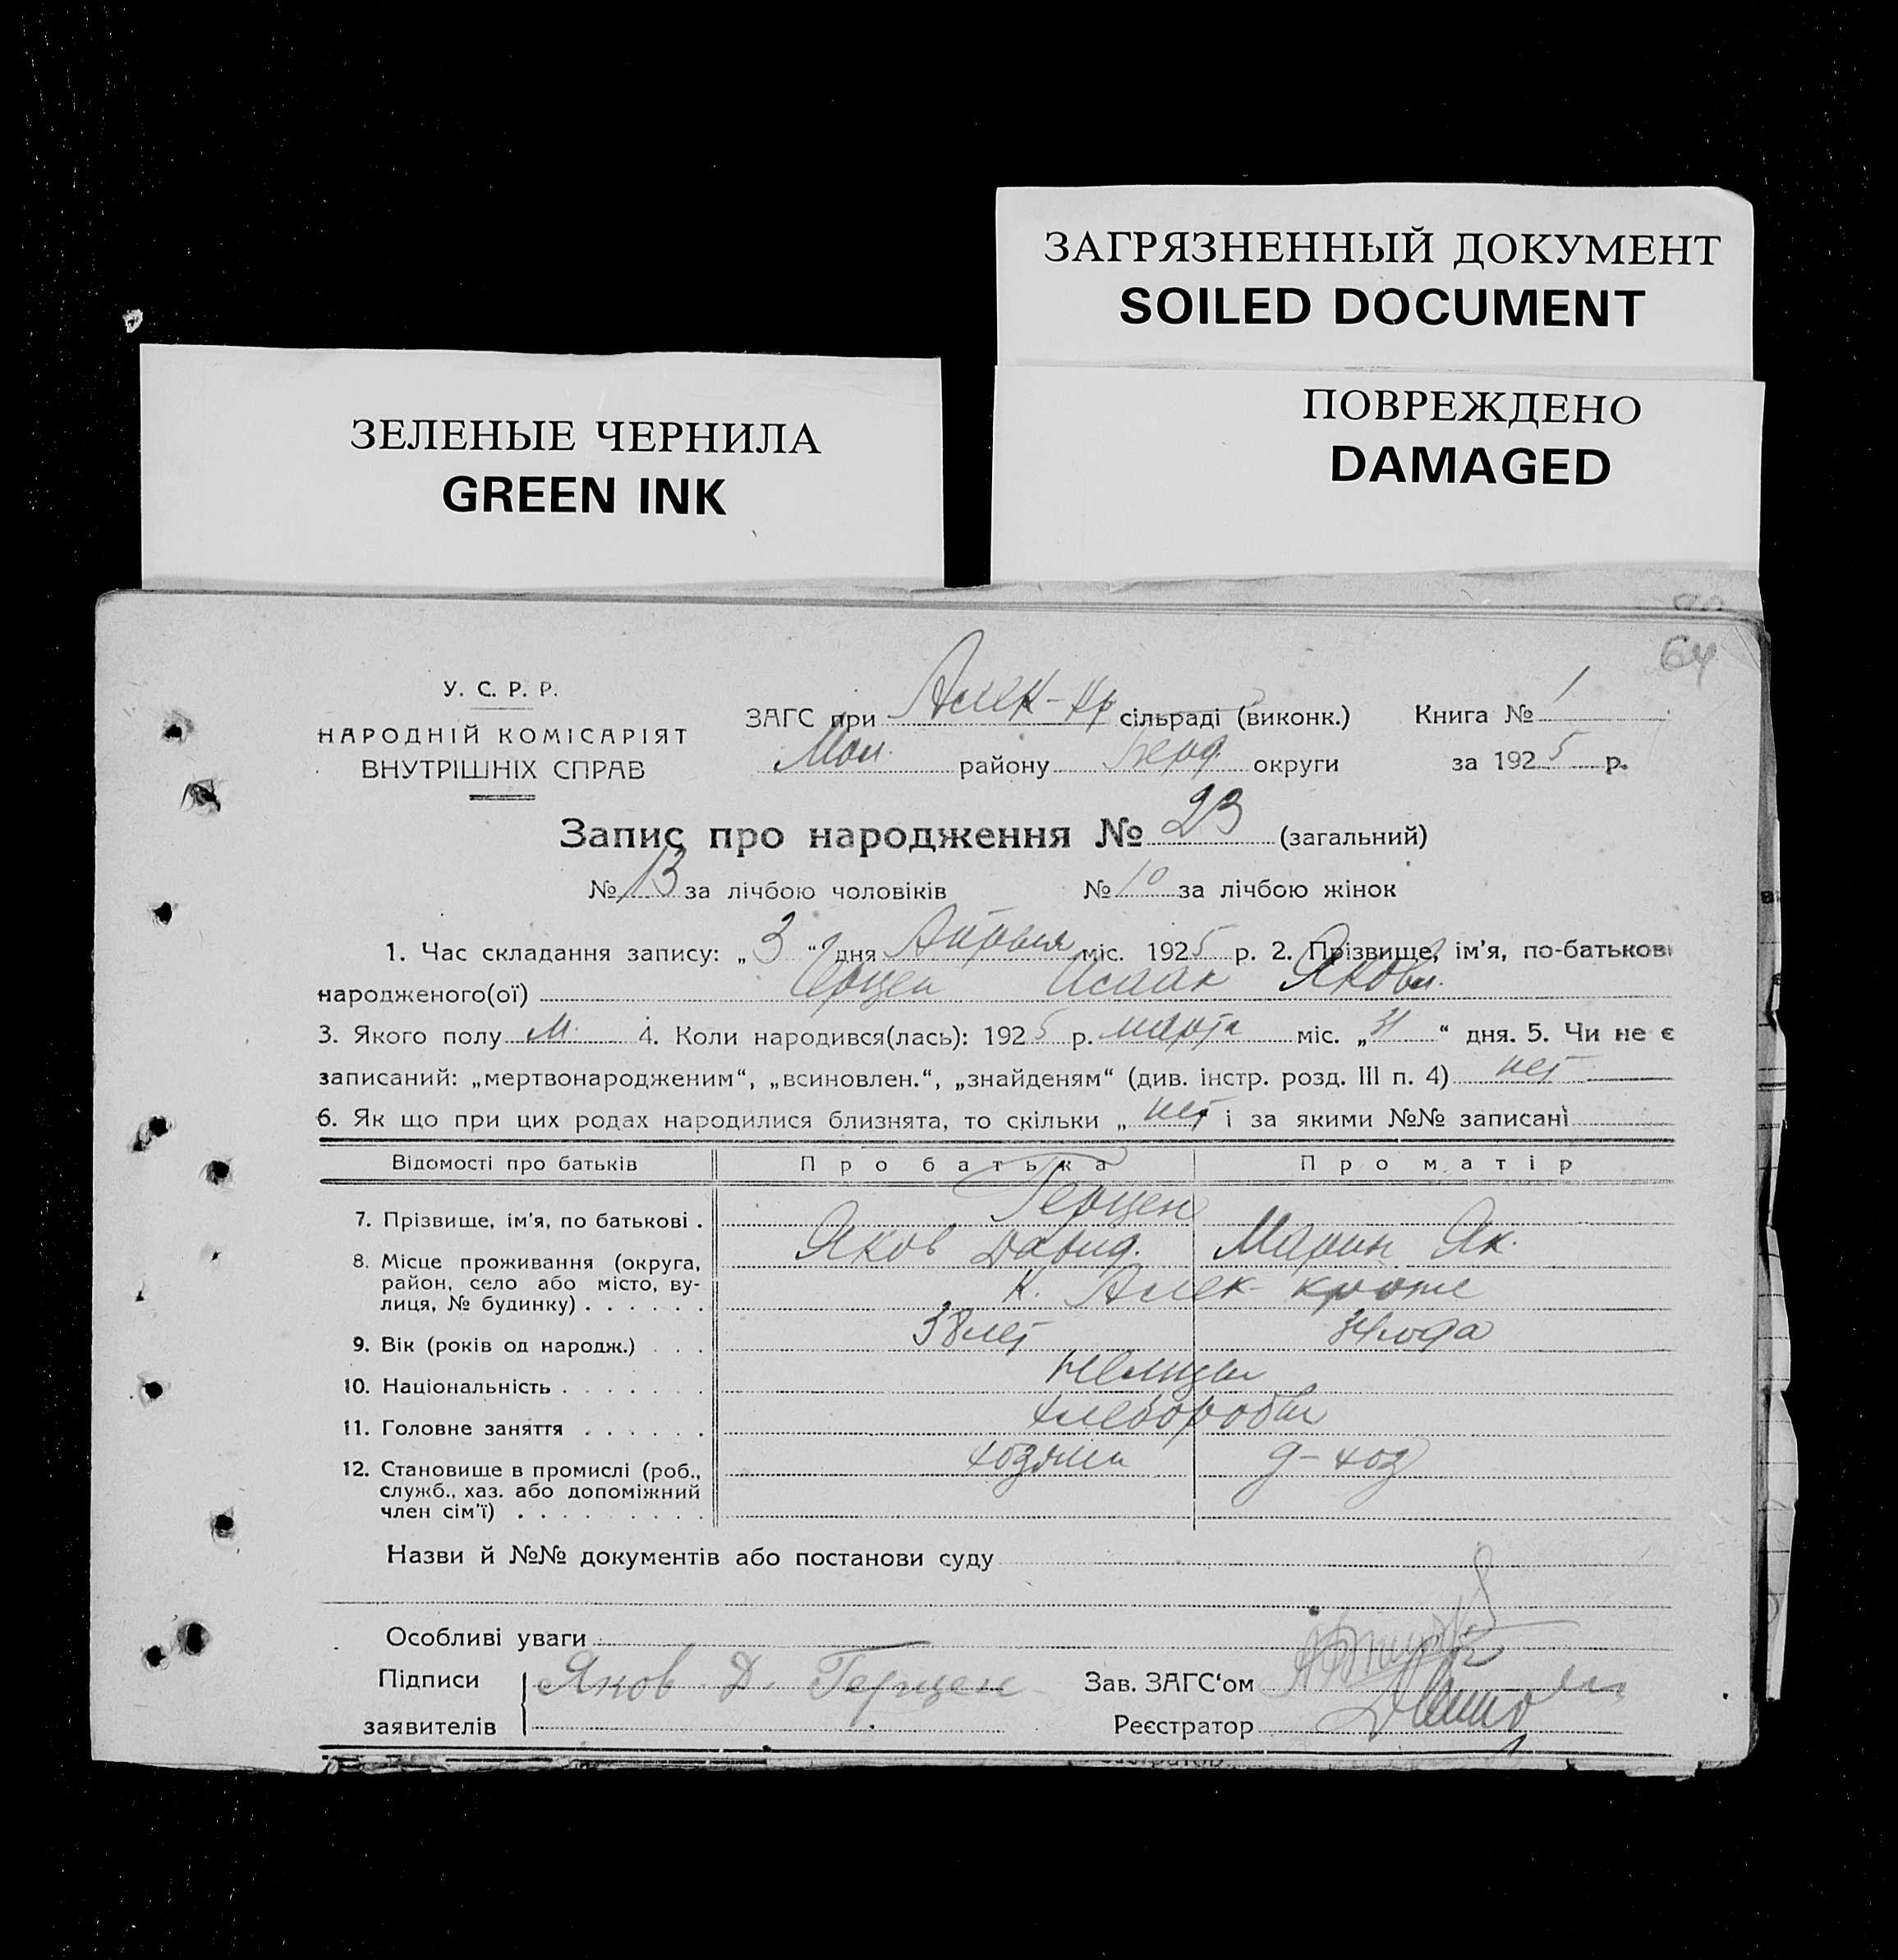 ЗАГРЯЗНЕННЫЙ ДОКУМЕНТ
SOILED DOCUMENT
ПОВРЕЖДЕНО
DAMAGED
ЗЕЛЕНЫЕ ЧЕРНИЛА
GREEN INK
64
У. С. Р. Р.
НАРОДНІЙ КОМІСАРІЯТ
ВНУТРІШНІХ СПРАВ
ЗАГС при Алек-Кр сільраді (виконк.) Книга № 1
Мол. району Берд. округи за 1925 р.
Запис про народження № 23 (загальний)
№ 13 за лічбою чоловіків № 10 за лічбою жінок
1. Час складання запису: „ 3 “ дня Апреля міс. 1925 р. 2. Прізвище, ім’я, по-батькові
народженого(ої) Герцен Исаак Яковл.
3. Якого полу м. 4. Коли народився(лась): 1925 р. марта міс. „ 31 “ дня. 5. Чи не є
записаний: „мертвонародженим“, „всиновлен.“, „знайденям“ (див. інстр. розд. III п. 4) нет
6. Як що при цих родах народилися близнята, то скільки „ нет і за якими №№ записані
Відомості про батьків Про батька Про матір
7. Прізвище, ім’я, по батькові . Герцен
Яков Давид. Мария Як.
8. Місце проживання (округа,
район, село або місто, ву-
лиця, № будинку) . . . . . . К. Алек-кроне
9. Вік (років од народж.) . . . 38 лет 34 года
10. Національність . . . . . . . немцы
11. Головне заняття . . . . . . хлеборобы
12. Становище в промислі (роб., хозяин д-хоз
служб., хаз. або допоміжний
член сім’ї) . . . . . . . . .
Назви й №№ документів або постанови суду
Особливі уваги
Підписи Яков Д. Герцен Зав. ЗАГС‘ом
заявителів Реєстратор